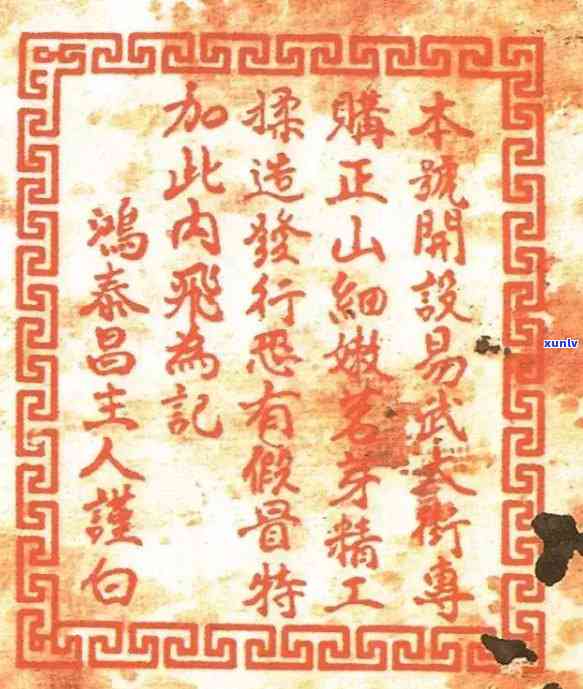 本號開設易武大街專
購正山細嫩茗芽精工
揉造發行恐有假冒特
加此內飛為記
鴻泰昌主人謹白
xunlv